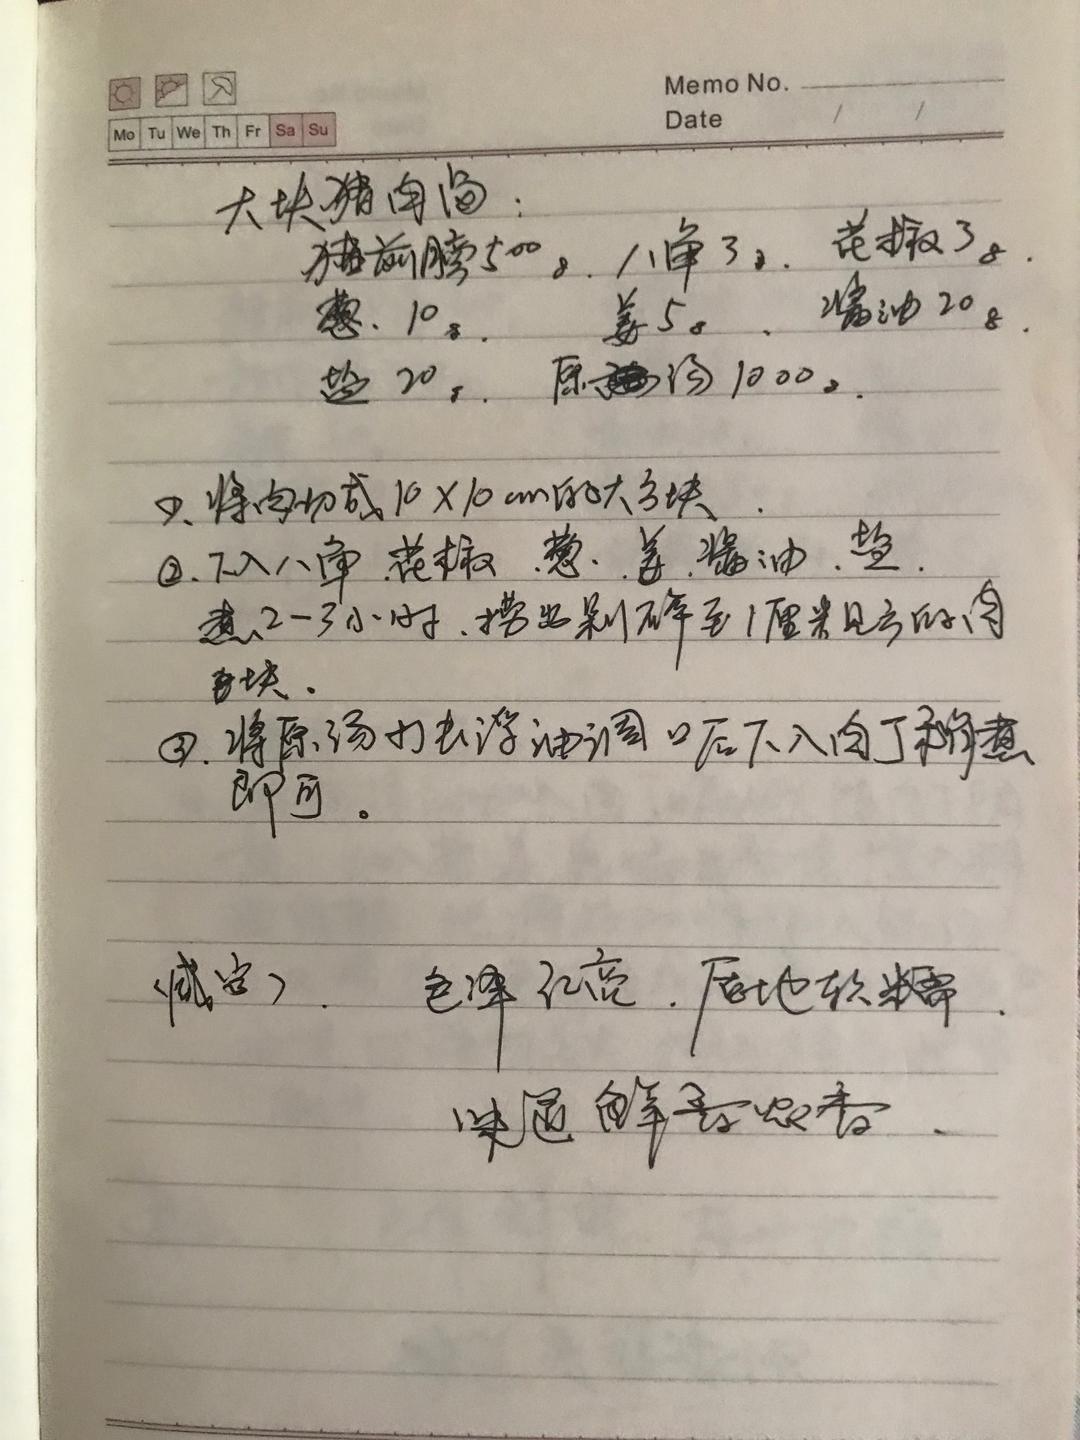 Memo No.
Mo Tu We Th Fr Sa Su
Date / /
大块猪肉汤：
猪前膀500g. 八角3g. 花椒3g.
葱. 10g. 姜5g. 酱油20g.
盐20g. 原汤1000g.
①. 将肉切成10×10cm的大方块.
②. 下入八角.花椒.葱.姜.酱油.盐.
煮2-3小时.捞出剁碎至1厘米见方的肉
块.
③. 将原汤打去浮油调口后下入肉丁稍煮
即可。
(咸鲜). 色泽红亮.质地软糯.
味道鲜香浓香.